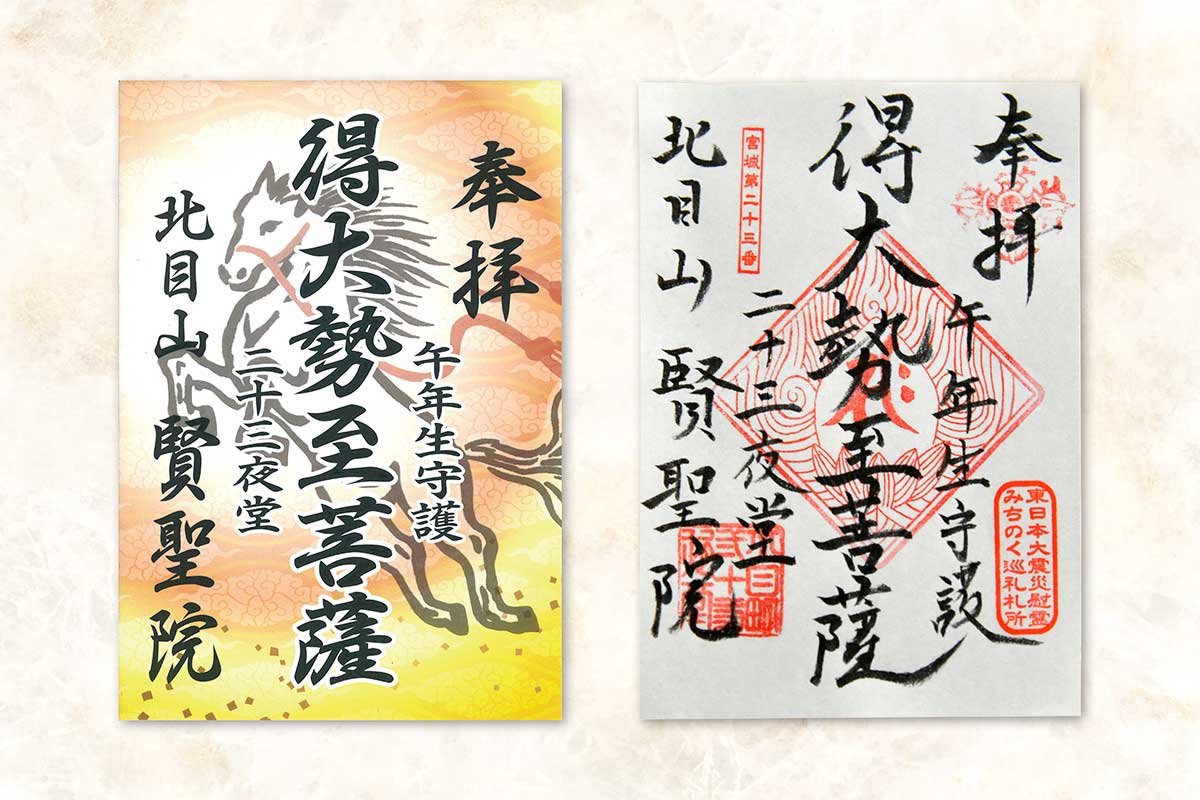 奉拝
午年生守護
得大勢至菩薩
二十三夜堂
北目山 賢聖院
奉拝
午年生守護
東日本大震災慰霊
みちのく巡礼札所
得大勢至菩薩
二十三夜堂
宮城第二十三番
北目山 賢聖院